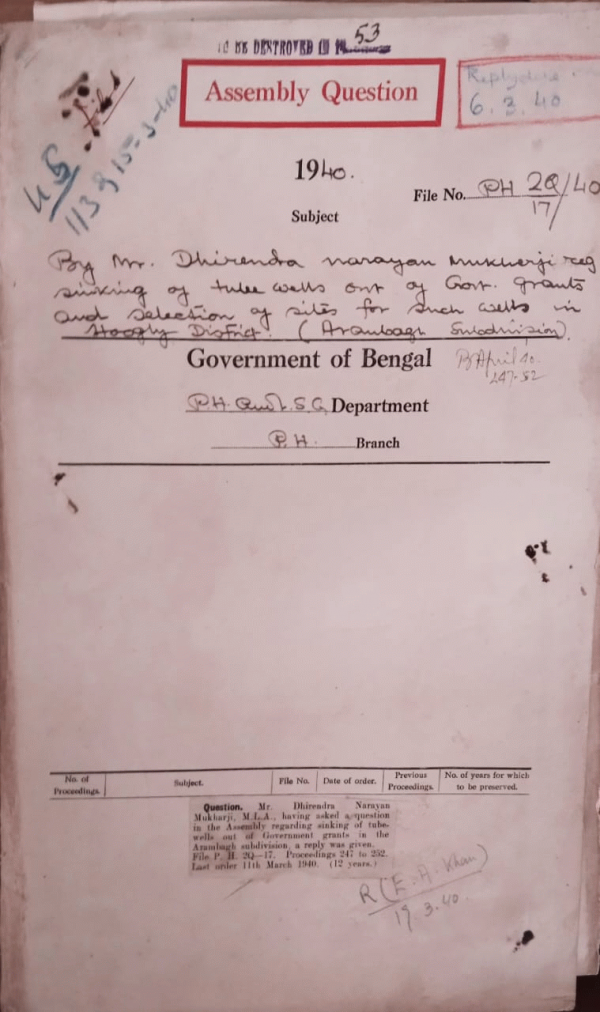 TO BE DESTROYED IN 53
Assembly Question
6.3.40
Filed
15-3-40
1940.
File No. PH 2Q/40
17/
Subject
By Mr. Dhirendra narayan Mukherji reg
sinking of tube wells out of Govt. grants
and selection of sites for such wells in
Hoogly District. (Arambagh Subdivision).
Government of Bengal
B April 40.
247-52
P.H. and L.S.G. Department
P.H. Branch
No. of Proceedings. Subject. File No. Date of order. Previous Proceedings. No. of years for which to be preserved.
Question. Mr. Dhirendra Narayan
Mukharji, M.L.A., having asked a question
in the Assembly regarding sinking of tube-
wells out of Government grants in the
Arambagh subdivision, a reply was given.
File P. H. 2Q—17. Proceedings 247 to 252.
Last order 11th March 1940. (12 years.)
R (E. A. Khan)
19.3.40.